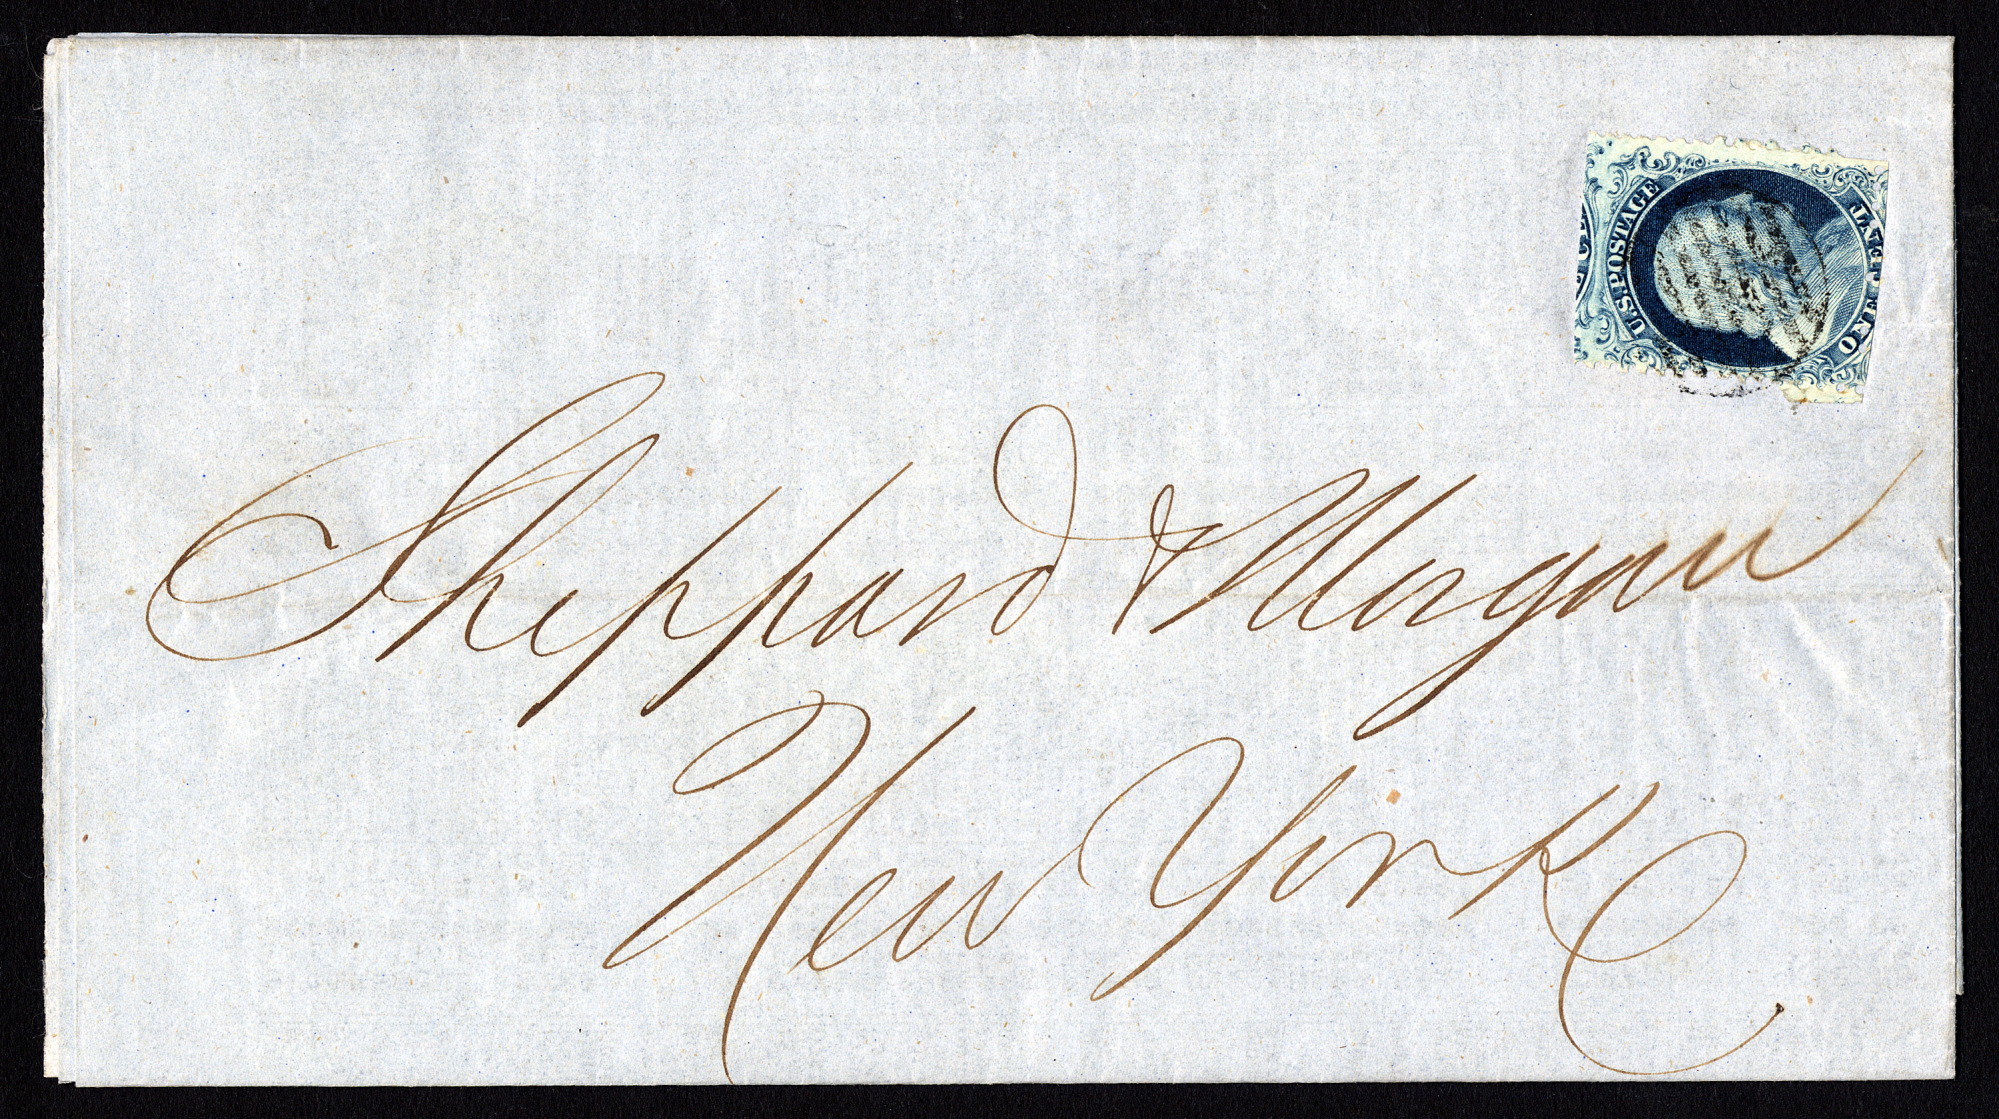 U.S. POSTAGE
ONE CENT
Sheppard & Morgan
New York